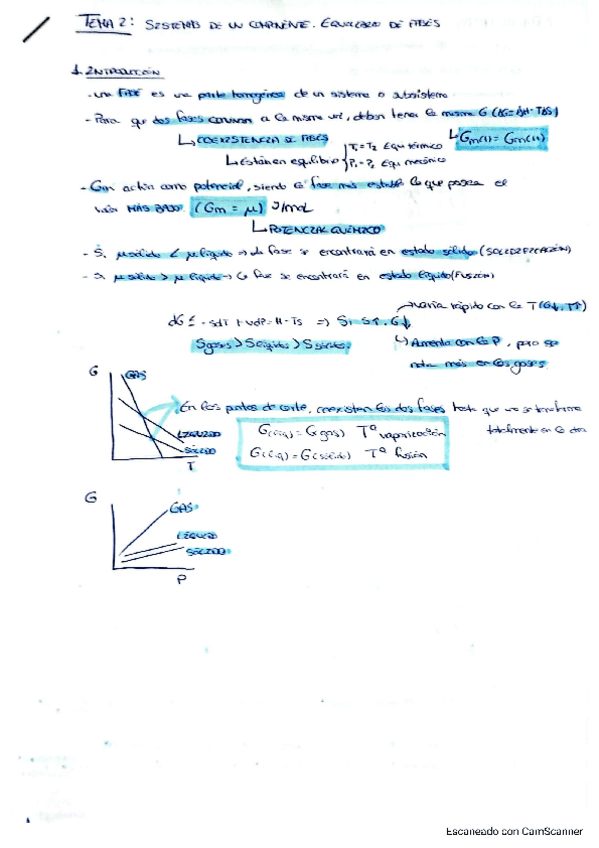 TEMA 2: SISTEMAS DE UN COMPONENTE. EQUILIBRIO DE FASES
1. INTRODUCCIÓN
- Una FASE es una parte homogénea de un sistema o subsistema
- Para que dos fases convivan a la misma vez, deben tener la misma G (ΔG=ΔH-TΔS)
↳ COEXISTENCIA DE FASES
↳ Gm(I) = Gm(II)
↳ Están en equilibrio { T₁=T₂ Equ térmico
P₁=P₂ Equ mecánico
- Gm actúa como potencial, siendo la fase más estable la que posea el
valor MÁS BAJO. (Gm = μ) J/mol
↳ POTENCIAL QUÍMICO
- Si μsólido < μlíquido → la fase se encontrará en estado sólido (SOLIDIFICACIÓN)
- Si μsólido > μlíquido → la fase se encontrará en estado líquido (FUSIÓN)
→ Varía rápido con la T (G↓, T↑)
dG = -SdT + VdP = H - TS ⇒ Si S↑, G↓
Sgases > Slíquidos > Ssólidos.
↳ Aumenta con la P, pero se
nota más en los gases
G
GAS
En los puntos de corte, coexisten las dos fases hasta que una se transforma
totalmente en la otra
LÍQUIDO
SÓLIDO
T
G(líq) = G(gas) Tª vaporización
G(líq) = G(sólido) Tª fusión
G
GAS
LÍQUIDO
SÓLIDO
P
Escaneado con CamScanner